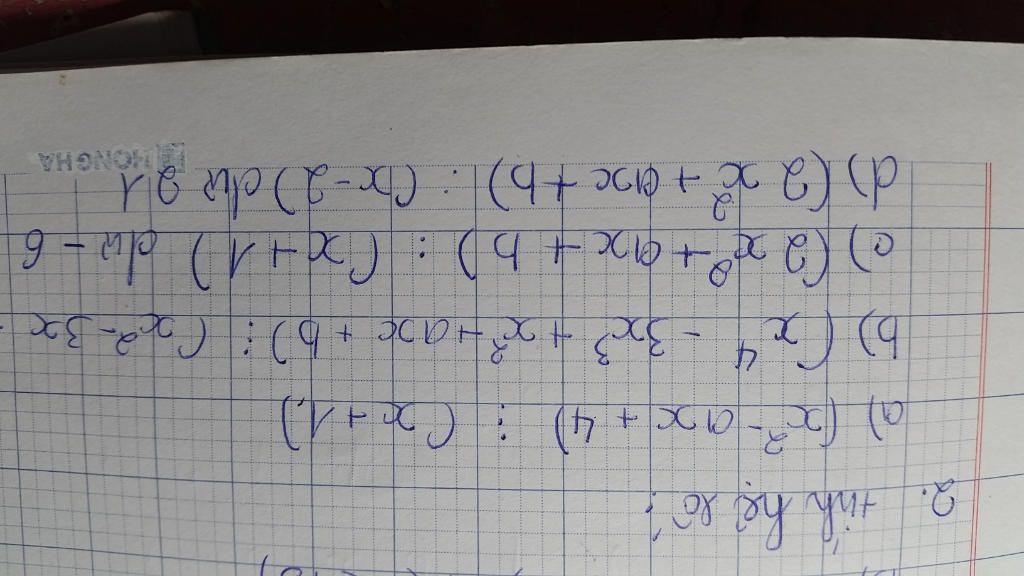 2. tính hệ số:
a) (x² - ax + 4) : (x + 1)
b) (x⁴ - 3x³ + x² + ax + b) : (x² - 3x
c) (2x² + ax + b) : (x + 1) dư - 6
d) (2x² + ax + b) : (x - 2) dư 21
HONG HA